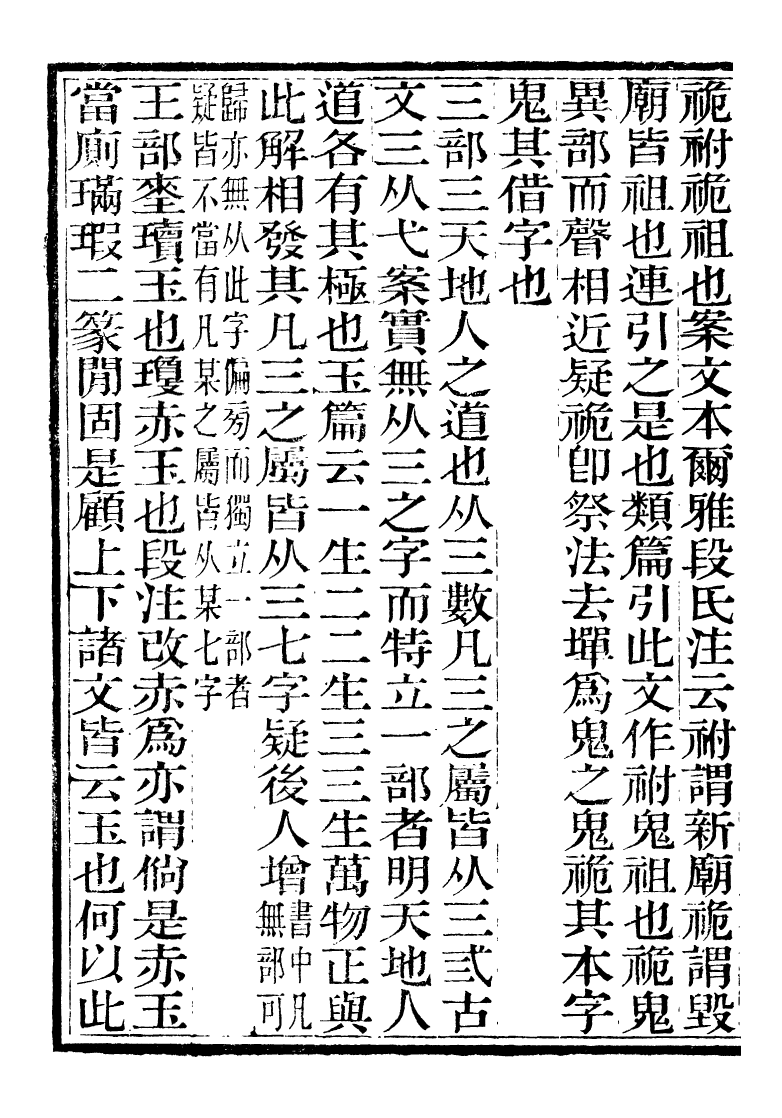 祪祔祪祖也案文本爾雅段氏注云祔謂新廟祪謂毀
廟皆祖也連引之是也類篇引此文作祔鬼祖也祪鬼
異部而聲相近疑祪卽祭法去墠爲鬼之鬼祪其本字
鬼其借字也
三部三天地人之道也从三數凡三之屬皆从三弎古
文三从弋案實無从三之字而特立一部者明天地人
道各有其極也玉篇云一生二二生三三生萬物正與
此解相發其凡三之屬皆从三七字疑後人增書中凡無部可
歸亦無从此字偏旁而獨立一部者
疑皆不當有凡某之屬皆从某七字
王部瓄玉也瓊赤玉也段注改赤爲亦謂倘是赤玉
當廁璊瑕二篆閒固是顧上下諸文皆云玉也何以此